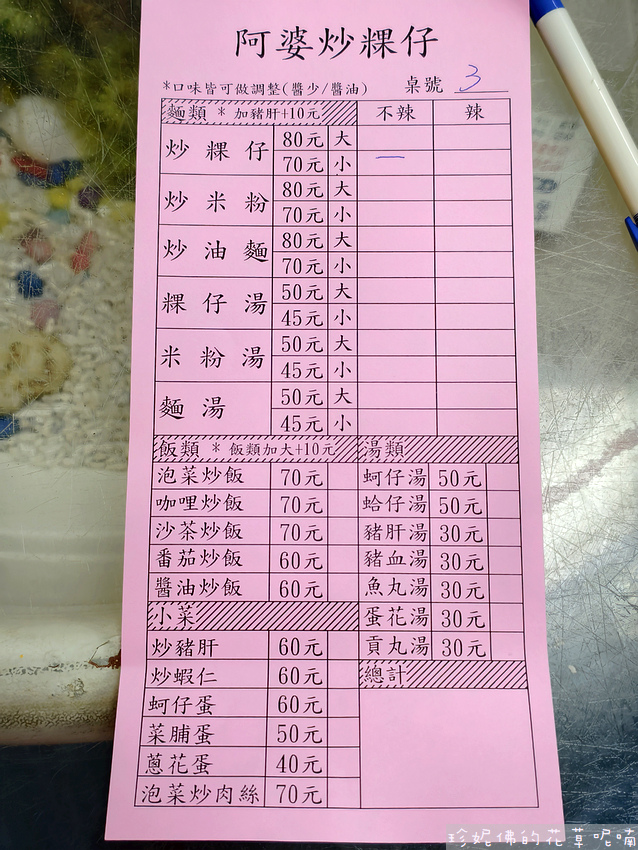 阿婆炒粿仔
*口味皆可做調整(醬少/醬油) 桌號 3
麵類 * 加豬肝+10元 不辣 辣
炒粿仔 80元 大
70元 小 一
炒米粉 80元 大
70元 小
炒油麵 80元 大
70元 小
粿仔湯 50元 大
45元 小
米粉湯 50元 大
45元 小
麵湯 50元 大
45元 小
飯類 * 飯類加大+10元 湯類
泡菜炒飯 70元 蚵仔湯 50元
咖哩炒飯 70元 蛤仔湯 50元
沙茶炒飯 70元 豬肝湯 30元
番茄炒飯 60元 豬血湯 30元
醬油炒飯 60元 魚丸湯 30元
小菜 蛋花湯 30元
炒豬肝 60元 貢丸湯 30元
炒蝦仁 60元 總計
蚵仔蛋 60元
菜脯蛋 50元
蔥花蛋 40元
泡菜炒肉絲 70元
珍妮佛的花草呢喃